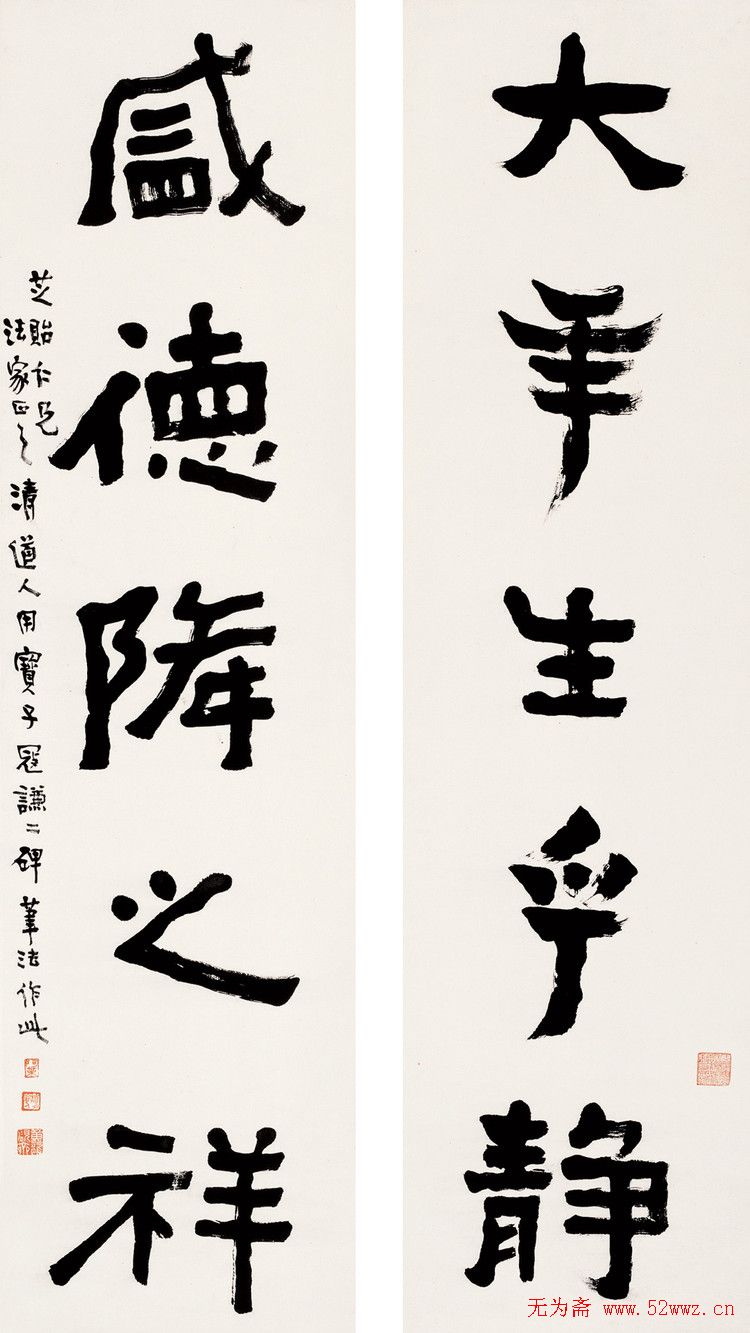 大年生乎静
盛德降之祥
芝貽仁兄
法家正之 清道人用寶子寇謙二碑筆法作此
无为斋 www.52wwz.cn